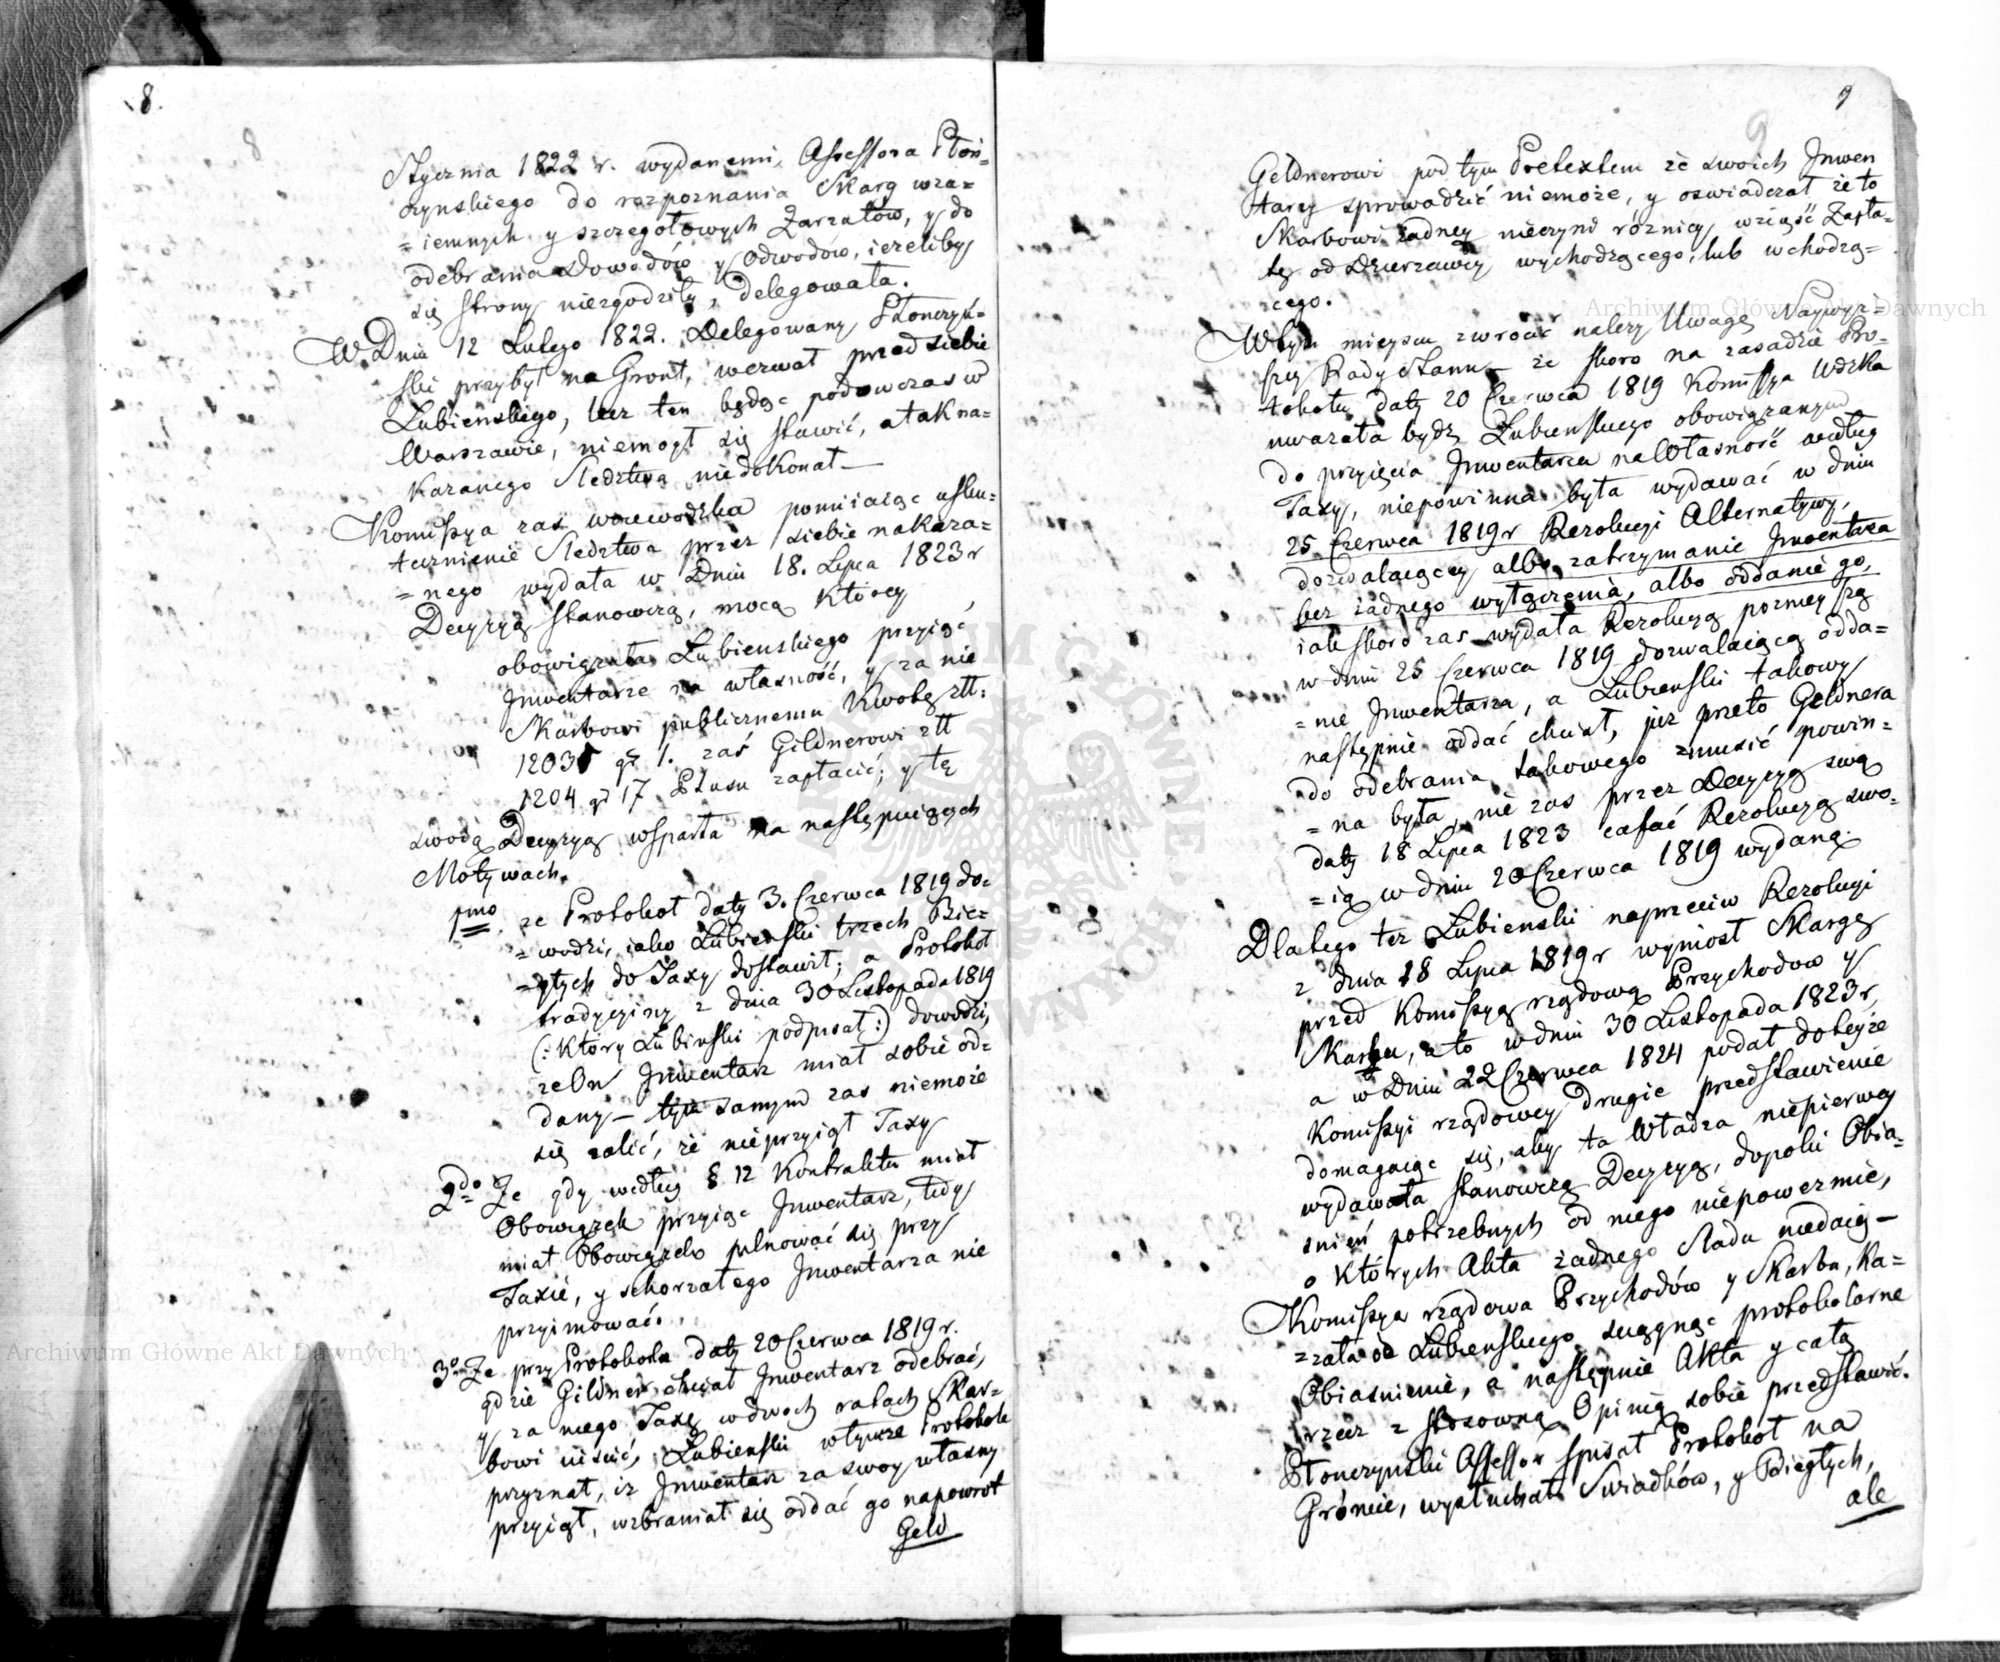 8.
8
Stycznia 1822 r. wydanemi, Assessora Płoń-
czynskiego do rozpoznania Skarg wza=
=iemnych y szczegołowych Zarzutów, y do
odebrania Dowodów y Odwodów, ieżeliby
się strony niezgodziły, delegowała.
W Dniu 12 Lutego 1822. Delegowany Płonczyń-
ski przybył na Gront, wezwał przed siebie
Łubienskiego, lecz ten będąc podówczas w
Warszawie, niemogł się stawić, a tak na=
kazanego Sledztwa niedokonał—
Kommissya zas woiewodzka pomiiaiąc usku=
tecznienie Sledztwa przez siebie nakaza=
=nego wydała w Dniu 18. Lipca 1823 r
Decyzyą stanowczą, mocą którey
obowiązała Łubienskiego przyiąć
Inwentarze na własność, y za nie
Skarbowi publicznemu Kwotę złł:
1203 gr 1. zaś Gildnerowi złł
1204 gr 17 Plusu zapłacić; y tę
swoią Decyzyą wsparła na następuiących
Motywach.
1mo że Protokoł daty 3. Czerwca 1819 do=
=wodzi, iako Łubienski trzech Bie=
=głych do Taxy dostawił; a Protokoł
tradycyiny z dnia 30 Listopada 1819
(: który Łubinski podpisał :) dowodzi,
że On Inwentarz miał sobie od=
dany — tym samym zas niemoże
się żalić, że nieprzyiął Taxy
2do Że gdy według § 12 Kontraktu miał
Obowiązek przyiąc Inwentarz, tedy
miał Obowiązek pilnować się przy
Taxie, y schorzałego Inwentarza nie
przyimować.
3o Że przy Protokole daty 20 Czerwca 1819 r.
gdzie Gildner chciał Inwentarz odebrać,
y za niego Taxę w dwoch ratach Skar=
bowi uiścić, Łubienski w tymże Protokole
przyznał, iż Inwentarz za swoy własny
przyiął, wzbraniał się oddać go napowrot
Geld
9
9
Geldnerowi pod tym Pretextem że swoich Inwen
tarzy sprowadzić niemoże, y oswiadczał że to
Skarbowi żadney nieczyni różnicy, wziąść Zapła=
tę od Dzierzawcy wychodzącego, lub wchodzą=
cego.
W tym mieyscu zwrócić należy Uwagę Naywyż=
szey Rady Stanu — że skoro na zasadzie Pro=
tokołu daty 20 Czerwca 1819 Komissya Wdzka
uwazała bydź Łubienskiego obowiązanym
do przyięcia Inwentarza na Własność według
Taxy, niepowinna była wydawać w dniu
25 Czerwca 1819 r Rezolucyi Alternatywy,
dozwalaiącey albo zatrzymanie Inwentarza
bez żadnego wyłączenia, albo oddanie go,
iak skoro zas wydała Rezolucyą poznieyszą
w dniu 25 Czerwca 1819 dozwalaiącą odda=
=nie Inwentarza, a Łubienski takowy
następnie oddać chciał, iuż przeto Geldnera
do odebrania takowego zmusić powin=
=na była, nie zas przez Decyzyą swą
daty 18 Lipca 1823 cofać Rezolucyą swo=
=ią w dniu 20 Czerwca 1819 wydaną.
Dlatego też Łubienski naprzeciw Rezolucyi
z dnia 18 Lipca 1819 r wyniosł Skargę
przed Komissyą rządową Przychodow y
Skarbu, a to w dniu 30 Listopada 1823 r,
a w Dniu 22 Czerwca 1824 podał do teyże
Komissyi rządowey drugie przedstawienie
domagaiąc się, aby ta Władza niepierwey
wydawała stanowczą Decyzyą, dopoki Obia=
snień potrzebnych od niego niepoweźmie,
o których Akta żadnego sladu niedaią —
Kommissya rządowa Przychodów y Skarbu, Ka=
=zała od Łubienskiego sciągnąć protokolarne
Obiasnienie, a następnie Akta y całą
rzecz z stosowną Opinią sobie przedstawić.
Płonczynski Assessor spisał Protokoł na
Gróncie, wysłuchał Swiadków, y Biegłych,
ale
Archiwum Główne Akt Dawnych
Archiwum Główne Akt Dawnych
ARCHIWUM GŁÓWNE AKT DAWNYCH